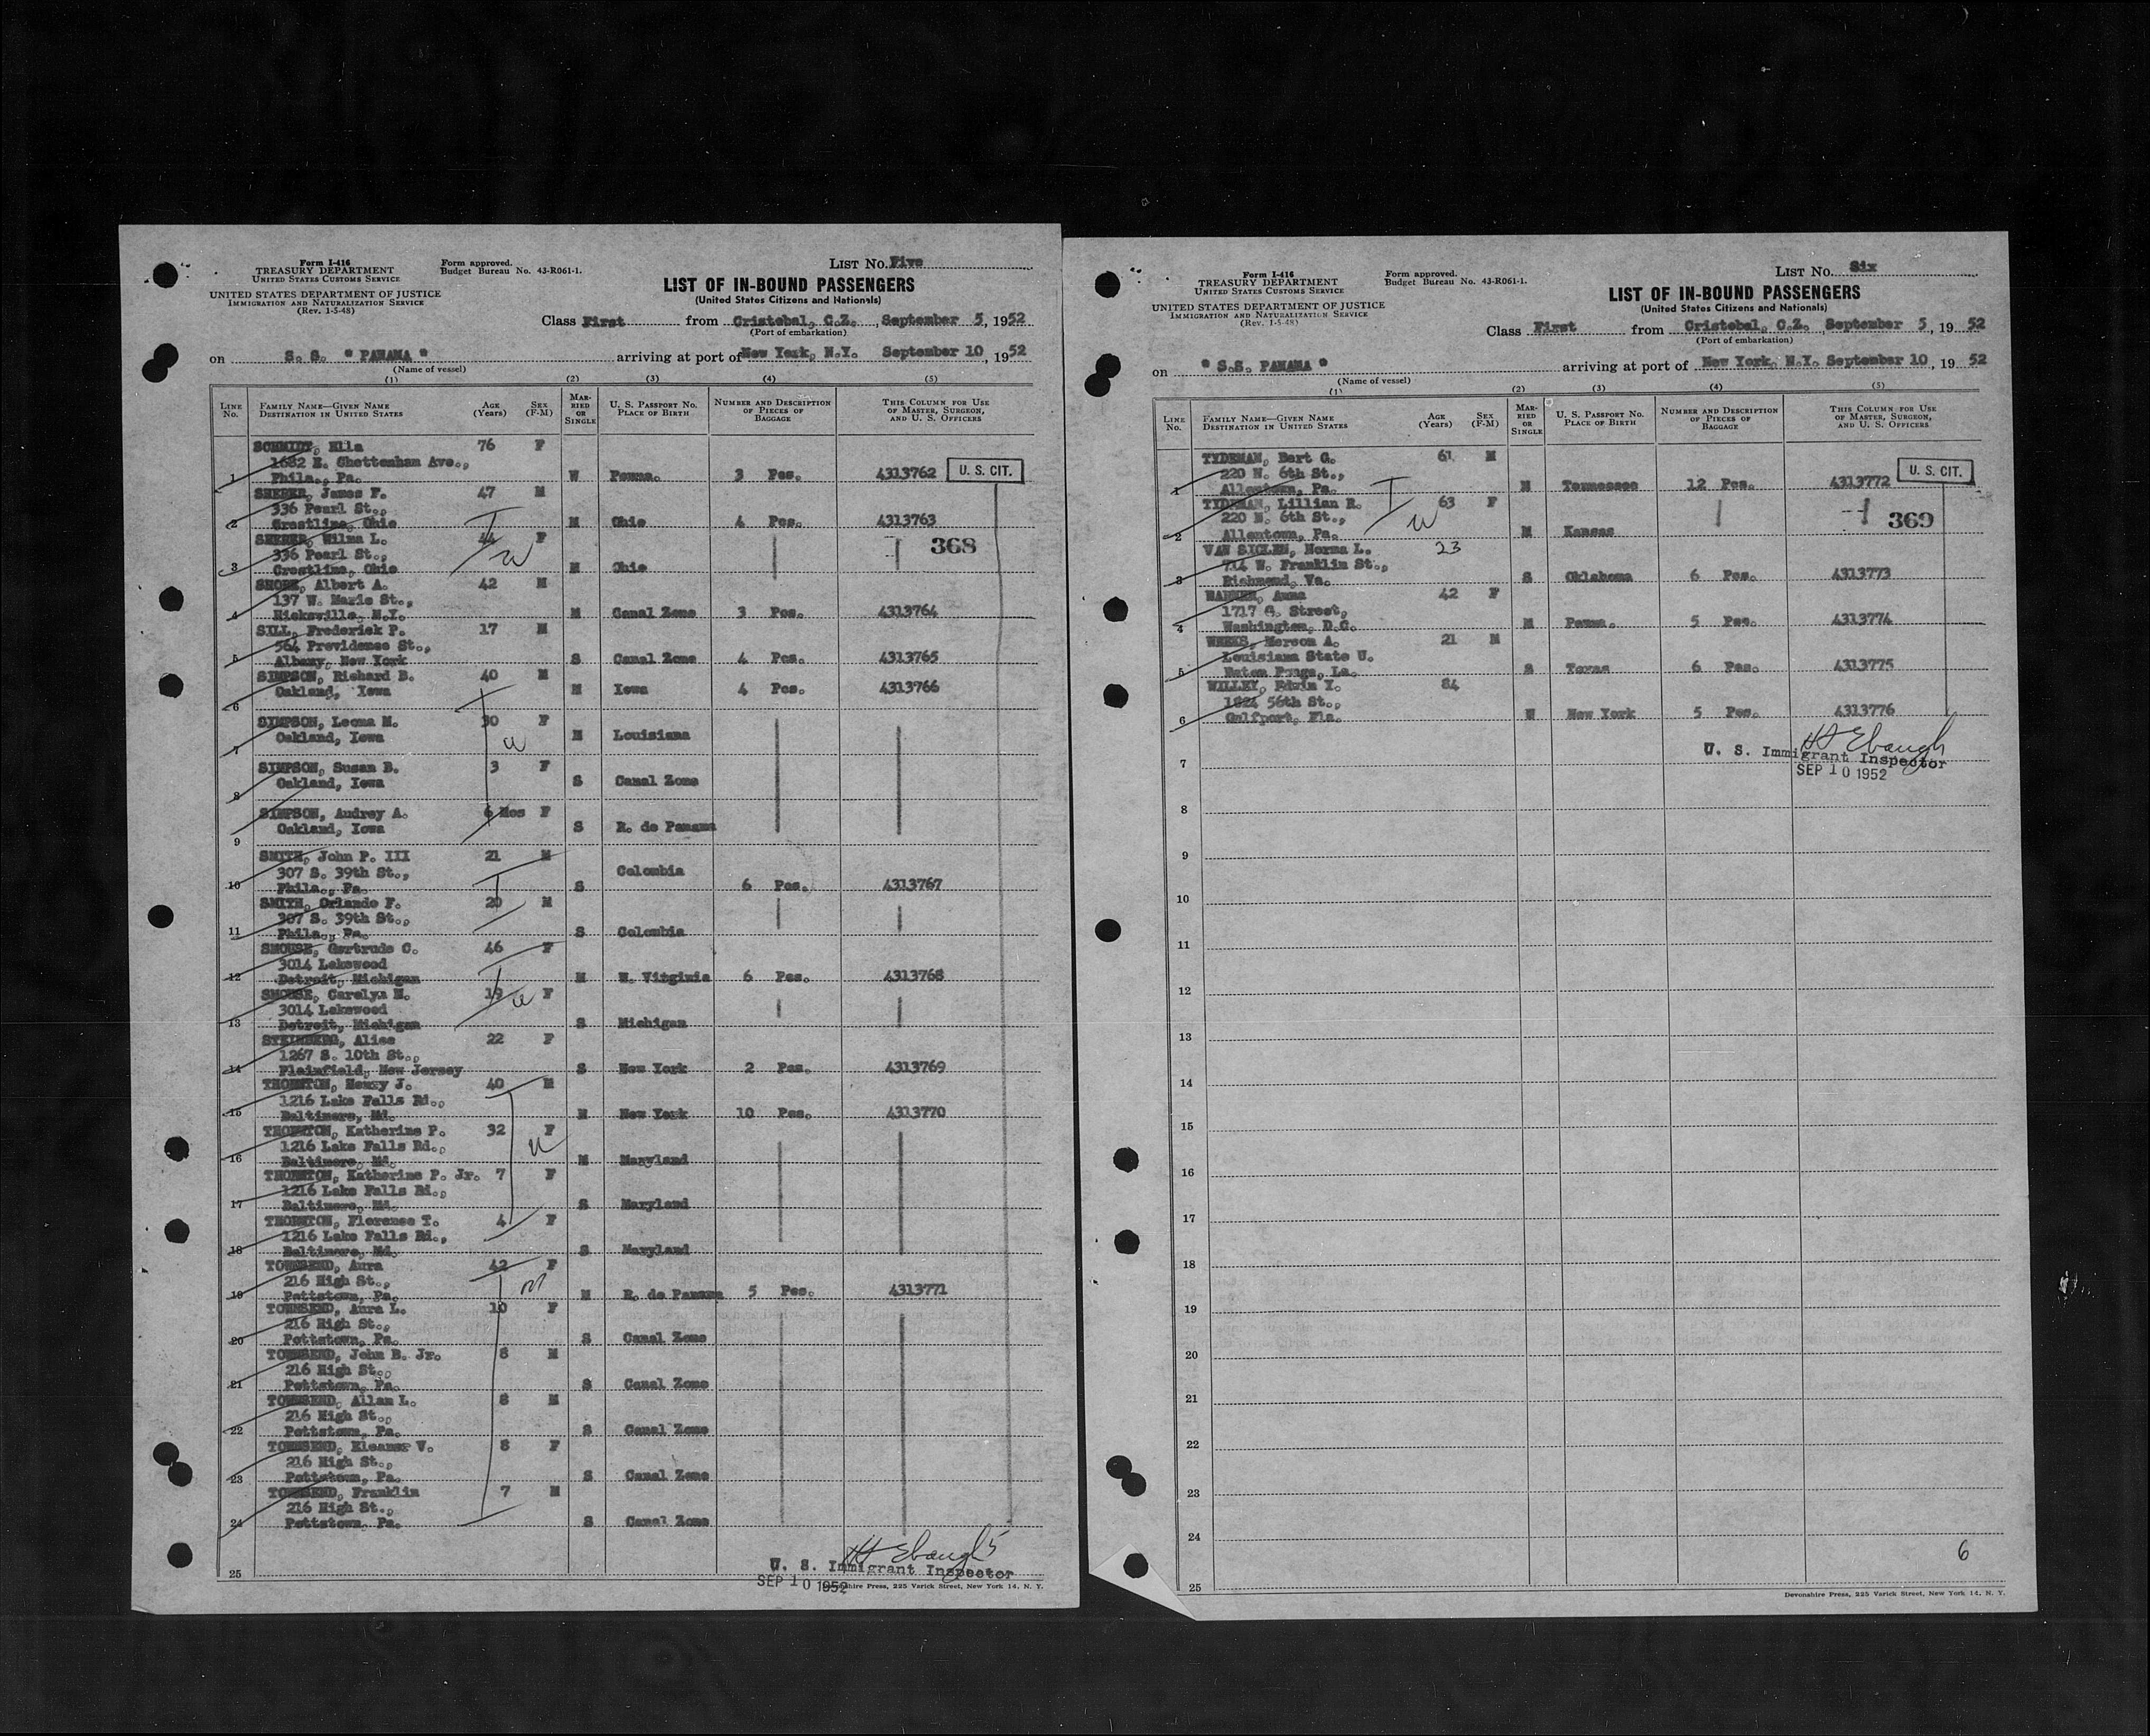 Form I-416
TREASURY DEPARTMENT
UNITED STATES CUSTOMS SERVICE
UNITED STATES DEPARTMENT OF JUSTICE
IMMIGRATION AND NATURALIZATION SERVICE
(Rev. 1-5-48)
Form approved.
Budget Bureau No. 43-R061-1.
LIST No. Five
LIST OF IN-BOUND PASSENGERS
(United States Citizens and Nationals)
Class First from Cristobal, C.Z., September 5, 1952
(Port of embarkation)
on S. S. " PANAMA " arriving at port of New York, N.Y. September 10, 1952
(Name of vessel)
(1) (2) (3) (4) (5)
LINE No. FAMILY NAME—GIVEN NAME DESTINATION IN UNITED STATES AGE (Years) SEX (F-M) MARRIED OR SINGLE U. S. PASSPORT NO. PLACE OF BIRTH NUMBER AND DESCRIPTION OF PIECES OF BAGGAGE THIS COLUMN FOR USE OF MASTER, SURGEON, AND U. S. OFFICERS
SCHMIDT, Ella 76 F
1682 E. Chettenham Ave.,
1 Phila., Pa. W Penna. 3 Pcs. 4313762 U. S. CIT.
SHERER, James F. 47 M
336 Pearl St.,
2 Crestline, Ohio M Ohio 4 Pcs. 4313763
SHERER, Wilma L. 44 F 368
336 Pearl St.,
3 Crestline, Ohio M Ohio
SHORE, Albert A. 42 M
137 W. Marie St.,
4 Hicksville, N.Y. M Canal Zone 3 Pcs. 4313764
SILL, Frederick P. 17 M
564 Providence St.,
5 Albany, New York S Canal Zone 4 Pcs. 4313765
SIMPSON, Richard B. 40 M
6 Oakland, Iowa M Iowa 4 Pcs. 4313766
SIMPSON, Leona M. 30 F
7 Oakland, Iowa M Louisiana
SIMPSON, Susan B. 3 F
8 Oakland, Iowa S Canal Zone
SIMPSON, Audrey A. 6 Mos F
9 Oakland, Iowa S R. de Panama
SMITH, John P. III 21 M
307 S. 39th St., Colombia
10 Phila., Pa. S 6 Pcs. 4313767
SMITH, Orlando F. 20 M
307 S. 39th St.,
11 Phila., Pa. S Colombia
SMOUSE, Gertrude C. 46 F
3014 Lakewood
12 Detroit, Michigan M W. Virginia 6 Pcs. 4313768
SMOUSE, Carolyn M. 19 F
3014 Lakewood
13 Detroit, Michigan S Michigan
STEINBERG, Alice 22 F
1267 S. 10th St.,
14 Plainfield, New Jersey S New York 2 Pcs. 4313769
THORNTON, Henry J. 40 M
1216 Lake Falls Rd.,
15 Baltimore, Md. M New York 10 Pcs. 4313770
THORNTON, Katherine P. 32 F
1216 Lake Falls Rd.,
16 Baltimore, Md. M Maryland
THORNTON, Katherine P. Jr. 7 F
1216 Lake Falls Rd.,
17 Baltimore, Md. S Maryland
THORNTON, Florence T. 4 F
1216 Lake Falls Rd.,
18 Baltimore, Md. S Maryland
TOWNSEND, Aura 42 F
216 High St.,
19 Pottstown, Pa. M R. de Panama 5 Pcs. 4313771
TOWNSEND, Aura L. 10 F
216 High St.,
20 Pottstown, Pa. S Canal Zone
TOWNSEND, John B. Jr. 8 M
216 High St.,
21 Pottstown, Pa. S Canal Zone
TOWNSEND, Allan L. 8 M
216 High St.,
22 Pottstown, Pa. S Canal Zone
TOWNSEND, Eleanor V. 8 F
216 High St.,
23 Pottstown, Pa. S Canal Zone
TOWNSEND, Franklin 7 M
216 High St.,
24 Pottstown, Pa. S Canal Zone
H Ebaugh 5
25 U. S. Immigrant Inspector
SEP 10 1952 Devonshire Press, 225 Varick Street, New York 14, N. Y.
Form I-416
TREASURY DEPARTMENT
UNITED STATES CUSTOMS SERVICE
UNITED STATES DEPARTMENT OF JUSTICE
IMMIGRATION AND NATURALIZATION SERVICE
(Rev. 1-5-48)
Form approved.
Budget Bureau No. 43-R061-1.
LIST No. Six
LIST OF IN-BOUND PASSENGERS
(United States Citizens and Nationals)
Class First from Cristobal, C.Z., September 5, 1952
(Port of embarkation)
on " S.S. PANAMA " arriving at port of New York, N.Y. September 10, 1952
(Name of vessel)
(1) (2) (3) (4) (5)
LINE No. FAMILY NAME—GIVEN NAME DESTINATION IN UNITED STATES AGE (Years) SEX (F-M) MARRIED OR SINGLE U. S. PASSPORT NO. PLACE OF BIRTH NUMBER AND DESCRIPTION OF PIECES OF BAGGAGE THIS COLUMN FOR USE OF MASTER, SURGEON, AND U. S. OFFICERS
TYDEMAN, Bert G. 61 M
220 N. 6th St.,
1 Allentown, Pa. M Tennessee 12 Pcs. 4313772 U. S. CIT.
TYDEMAN, Lillian R. 63 F
220 N. 6th St., 369
2 Allentown, Pa. M Kansas
VAN SICLEN, Norma L. 23
714 W. Franklin St.,
3 Richmond, Va. S Oklahoma 6 Pcs. 4313773
Anna 42 F
1717 G. Street,
4 Washington, D.C. M Penna. 5 Pcs. 4313774
WEEKS, Merson A. 21 M
Louisiana State U.
5 Baton Rouge, La. S Texas 6 Pcs. 4313775
WILLEY, Edwin Y. 84
1824 56th St.,
6 Gulfport, Fla. W New York 5 Pcs. 4313776
H Ebaugh
7 U. S. Immigrant Inspector
SEP 10 1952
8
9
10
11
12
13
14
15
16
17
18
19
20
21
22
23
24
6
25
Devonshire Press, 225 Varick Street, New York 14, N. Y.